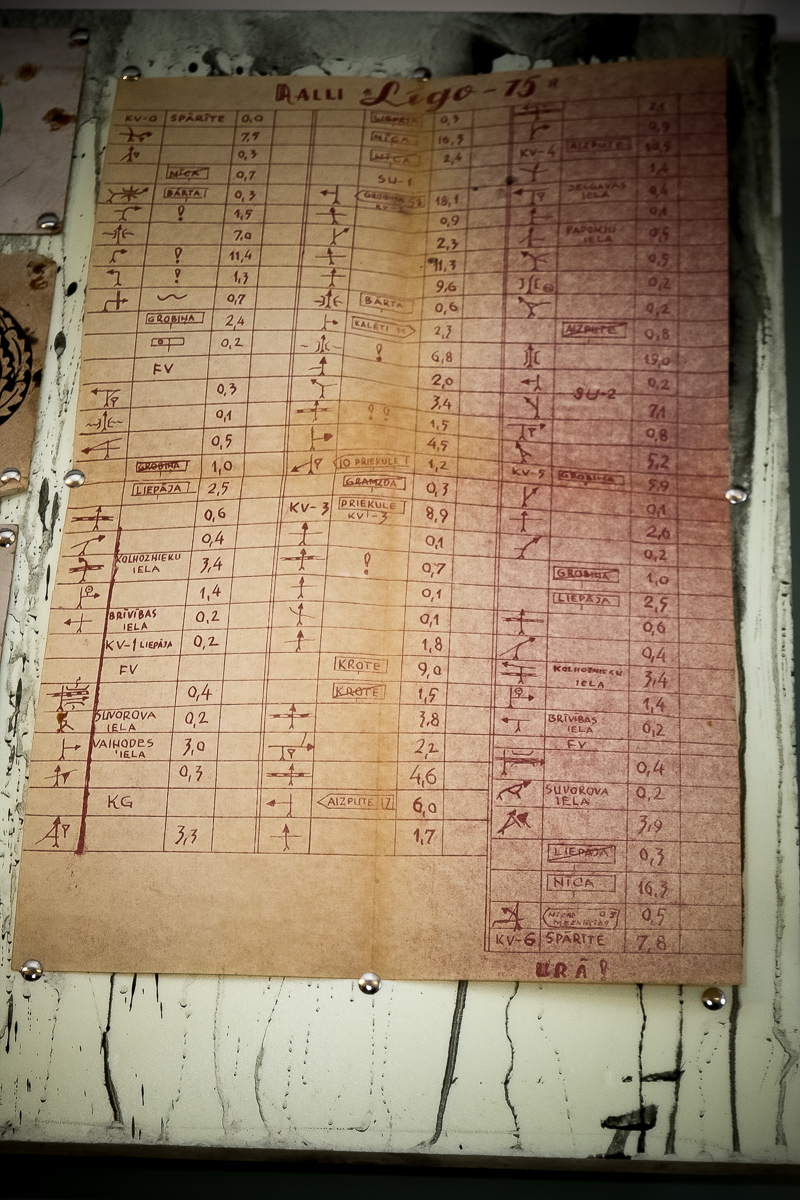 RALLI "Līgo-75"
KV-0 SPĀRĪTE 0,0
7,5
0,3
NĪCA 0,7
BĀRTA 0,3
! 1,5
7,0
! 11,4
! 1,3
0,7
GROBIŅA 2,4
0,2
FV
0,3
0,1
0,5
GROBIŅA 1,0
LIEPĀJA 2,5
0,6
0,4
KOLHOZNIEKU IELA 3,4
1,4
BRĪVĪBAS IELA 0,2
KV-1 LIEPĀJA 0,2
FV
0,4
SUVOROVA IELA 0,2
VAIŅODES IELA 3,0
0,3
KG
3,3
0,3
NĪCA 16,3
NĪCA 2,4
SU-1
GROBIŅA 18,1
0,9
2,3
11,3
9,6
BĀRTA 0,6
KALĒTI 2,3
! 6,8
2,0
! ! 3,4
1,5
4,5
10 PRIEKULE 1,2
GRAMZDA 0,3
KV-3 PRIEKULE KV-3 8,9
0,1
! 0,7
0,1
0,1
1,8
KROTE 9,0
KROTE 1,5
3,8
2,2
4,6
AIZPUTE 17 6,0
1,7
KV-4 AIZPUTE 10,5
1,4
JELGAVAS IELA 0,4
0,1
PADOMJU IELA 0,5
0,5
0,2
0,2
AIZPUTE 0,8
19,0
SU-2 0,2
7,1
0,8
5,2
KV-5 GROBIŅA 5,9
0,1
2,6
0,2
GROBIŅA 1,0
LIEPĀJA 2,5
0,6
0,4
KOLHOZNIEKU IELA 3,4
1,4
BRĪVĪBAS IELA 0,2
FV
0,4
SUVOROVA IELA 0,2
3,9
LIEPĀJA 0,3
NĪCA 16,3
0,5
KV-6 SPĀRĪTE 7,8
URĀ!